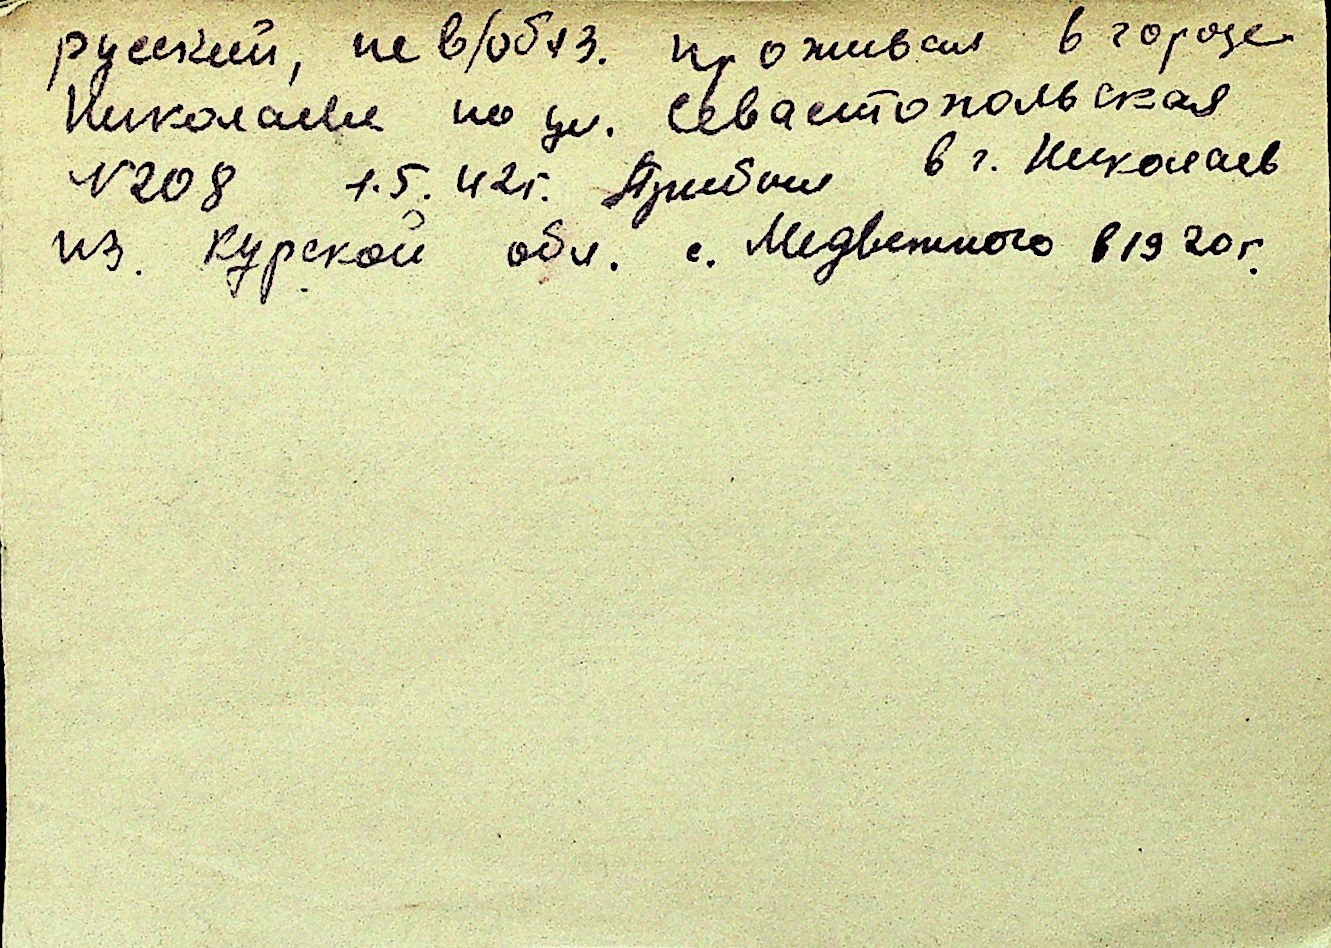 русский, не в/обяз. проживал в городе
Николаеве по ул. Севастопольская
№208 1.5.42г. Прибыл в г. Николаев
из. Курской обл. с. Медвежного в 1920г.